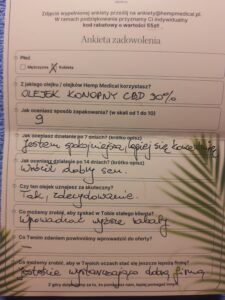 Zdjęcie wypełnionej ankiety prześlij na ankiety@hempmedical.pl.
W ramach podziękowania przyznamy Ci indywidualny
kod rabatowy o wartości 55zł!
Ankieta zadowolenia
Płeć
Mężczyzna X Kobieta
Z jakiego olejku / olejków Hemp Medical korzystasz?
OLEJEK KONOPNY CBD 30%
Jak oceniasz sposób zapakowania? (w skali od 1 do 10)
9
Jak oceniasz działanie po 7 dniach? (krótko opisz)
Jestem spokojniejsza, lepiej się
Jak oceniasz działanie po 14 dniach? (krótko opisz)
Wrócił dobry sen.
Czy ten olejek uznajesz za skuteczny?
Tak, zdecydowanie.
Co możemy zrobić, aby zyskać w Tobie stałego klienta?
Wprowadzać wyższe rabaty
Co Twoim zdaniem powinniśmy wprowadzić do oferty?
—
Co możemy zrobić, aby w Twoich oczach stać się jeszcze lepszą firmą?
Jesteście wystarczająco dobrą firmą
Z góry dziękujemy za to, że pomożesz nam, lepiej pomagać innym!